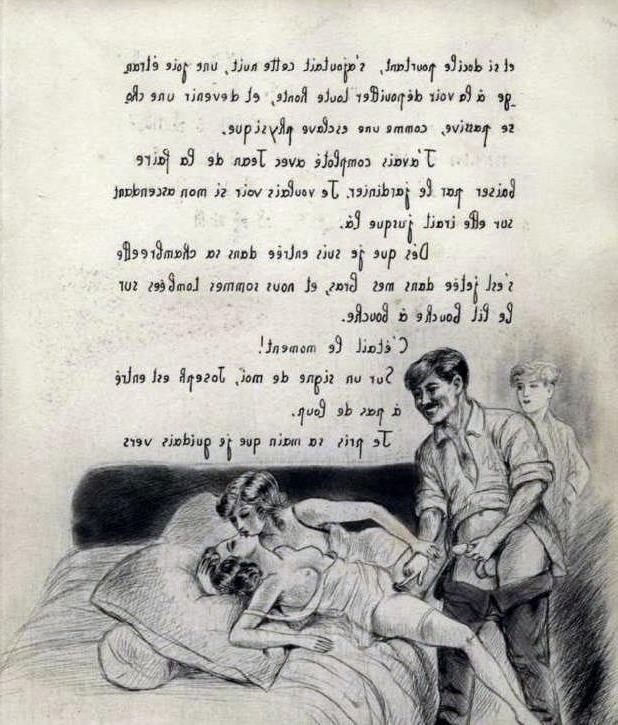 et si docile pourtant, s'ajoutait cette nuit, une joie étran
ge à la voir dépouiller toute honte, et devenir une cho
se passive, comme une esclave physique.
J'avais comploté avec Jean de la faire
baiser par le jardinier. Je voulais voir si mon ascendant
sur elle irait jusque là.
Dès que je suis entrée dans sa chambre elle
s'est jetée dans mes bras, et nous sommes tombées sur
le lit bouche à bouche.
C'était le moment!
Sur un signe de moi, Joseph est entré
à pas de loup.
Je pris sa main que je guidais vers